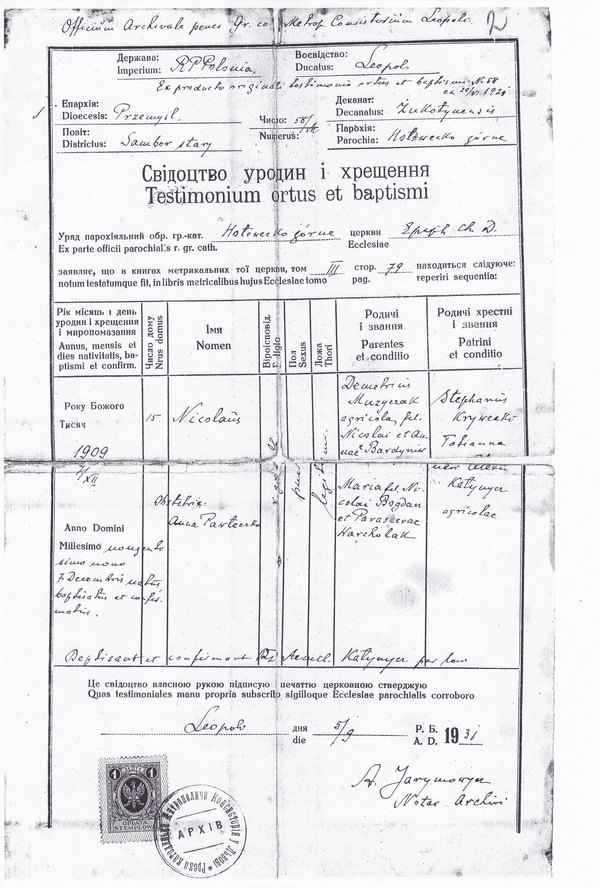 Officium Archivale penes Gr. cat. Metrop. Consistorium Leopoli.
2
Держава:
Imperium: RPPolonia,
Воєвідство:
Ducatus: Leopol.
Ex producto originali testimonio ortus et baptismi N. 58
Епархія:
Dioecesis: Przemysl.
Число: 58/
Numerus:
Деканат:
Decanatus: Żukotynensis,
Повіт:
Districtus: Sambor stary
Парохія:
Parochia: Hołowecko górne
Свідоцтво уродин і хрещення
Testimonium ortus et baptismi
Уряд парохіяльний обр. гр.-кат. Hołowecko górne церкви
Ex parte officii parochialis r. gr. cath. Ecclesiae
заявляє, що в книгах метрикальних тої церкви, том III стор. 79 находиться слідуюче:
notum testatumque fit, in libris metricalibus hujus Ecclesiae tomo pag. reperiri sequentia:
Рік місяць і день уродин і хрещення і миропомазання
Annus, mensis et dies nativitatis, baptismi et confirm.
Число дому
Nrus domus
Імя
Nomen
Віроісповід.
Religio
Пол
Sexus
Ложа
Thori
Родичі і звання
Parentes et conditio
Родичі хрестні і звання
Patrini et conditio
Року Божого
Тисяч
1909
7/XII
15
Nicolaus
Demetrius
Muzyczak
agricola, fil.
Nicolai et An-
nae Bardyn
Stephanus
Krywecki
Tatianna
Obstetrix:
Anna Pawlecko
Maria fil. Ni-
colai Bogdan
et Parascevae
Harcholak
Katynyez
agricolae
Anno Domini
Millesimo nongente-
simo nono
7 Decembris natus
baptisatus et confir-
matus.
Baptisavit et confirmavit Katynyez par loci
Це свідоцтво власною рукою підписую і печаттю церковною стверджую
Quas testimoniales manu propria subscribo sigilloque Ecclesiae parochialis corroboro
Leopoli дня 5/9 Р. Б.
die A. D. 1931
A. Jarymowycz
Notar. Archivi
1 1
OPŁATA
STEMPLOWA
АРХІВ